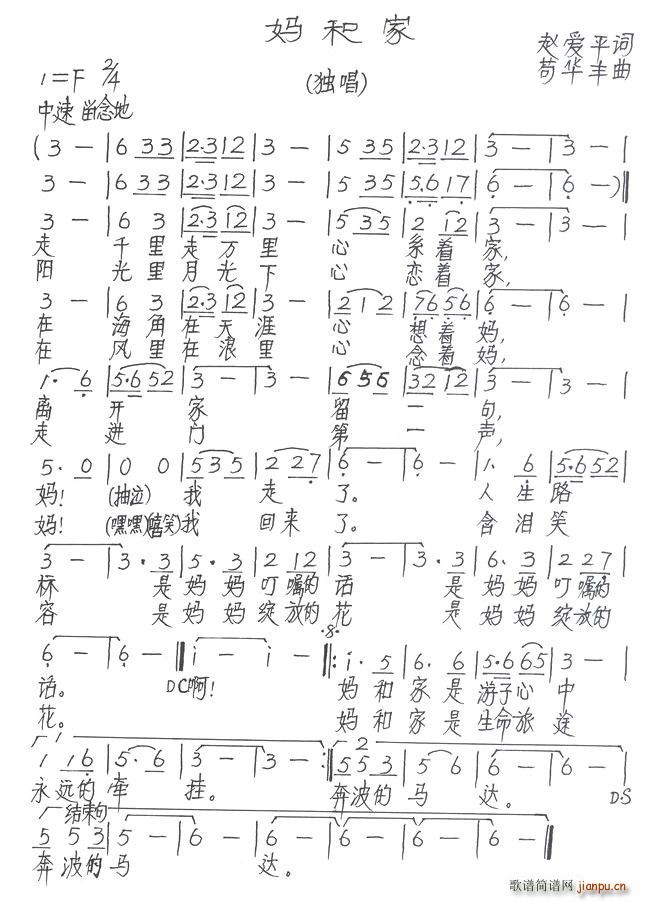 妈和家
赵爱平词
(独唱)
苟华丰曲
1=F 2/4
中速 留念地
(3 - | 6 33 | 2·3 12 | 3 - | 5 35 | 2·3 12 | 3 - | 3 - |
3 - | 6 33 | 2·3 12 | 3 - | 5 35 | 5·6 17 | 6 - | 6 -)
3 - | 6 3 | 2·3 12 | 3 - | 5 35 | 2 12 | 3 - | 3 - |
走 千里走万里 心 系着家,
阳 光里月光下 心 恋着家,
3 - | 6 3 | 2·3 12 | 3 - | 2 1 2 | 76 56 | 6 - | 6 - |
在 海角在天涯 心 想着妈,
在 风里在浪里 心 念着妈,
1· 6 | 5·6 52 | 3 - | 3 - | 6 56 | 32 12 | 3 - | 3 - |
离开家 留一句,
走进门 第一声,
5· 0 | 0 0 | 5 35 | 2 27 | 6 - | 6 - | 1· 6 | 5·6 52 |
妈! (抽泣) 我走了。 人生路
妈! (嘿嘿)(嘻笑)我回来了。 含泪笑
3 - | 3· 3 | 5· 3 | 2 12 | 3 - | 3· 3 | 6· 3 | 2 27 |
标 是妈妈叮嘱的话 是妈妈叮嘱的
容 是妈妈绽放的花 是妈妈绽放的
6 - | 6 - || i - | i - ||: i· 5 | 6· 6 | 5·6 65 | 3 - |
话。 DC啊! 妈和家是游子心中
花。 妈和家是生命旅途
1 16 | 5· 6 | 3 - | 3 - :|| 5 53 | 5 6 | 6 - | 6 - |
永远的牵挂。 奔波的马达。 D·S
结束句
5 53 | 5 - | 6 - | 6 - | 6 - | 6 - | 6 - ||
奔波的马达。
歌谱简谱网 jianpu.cn